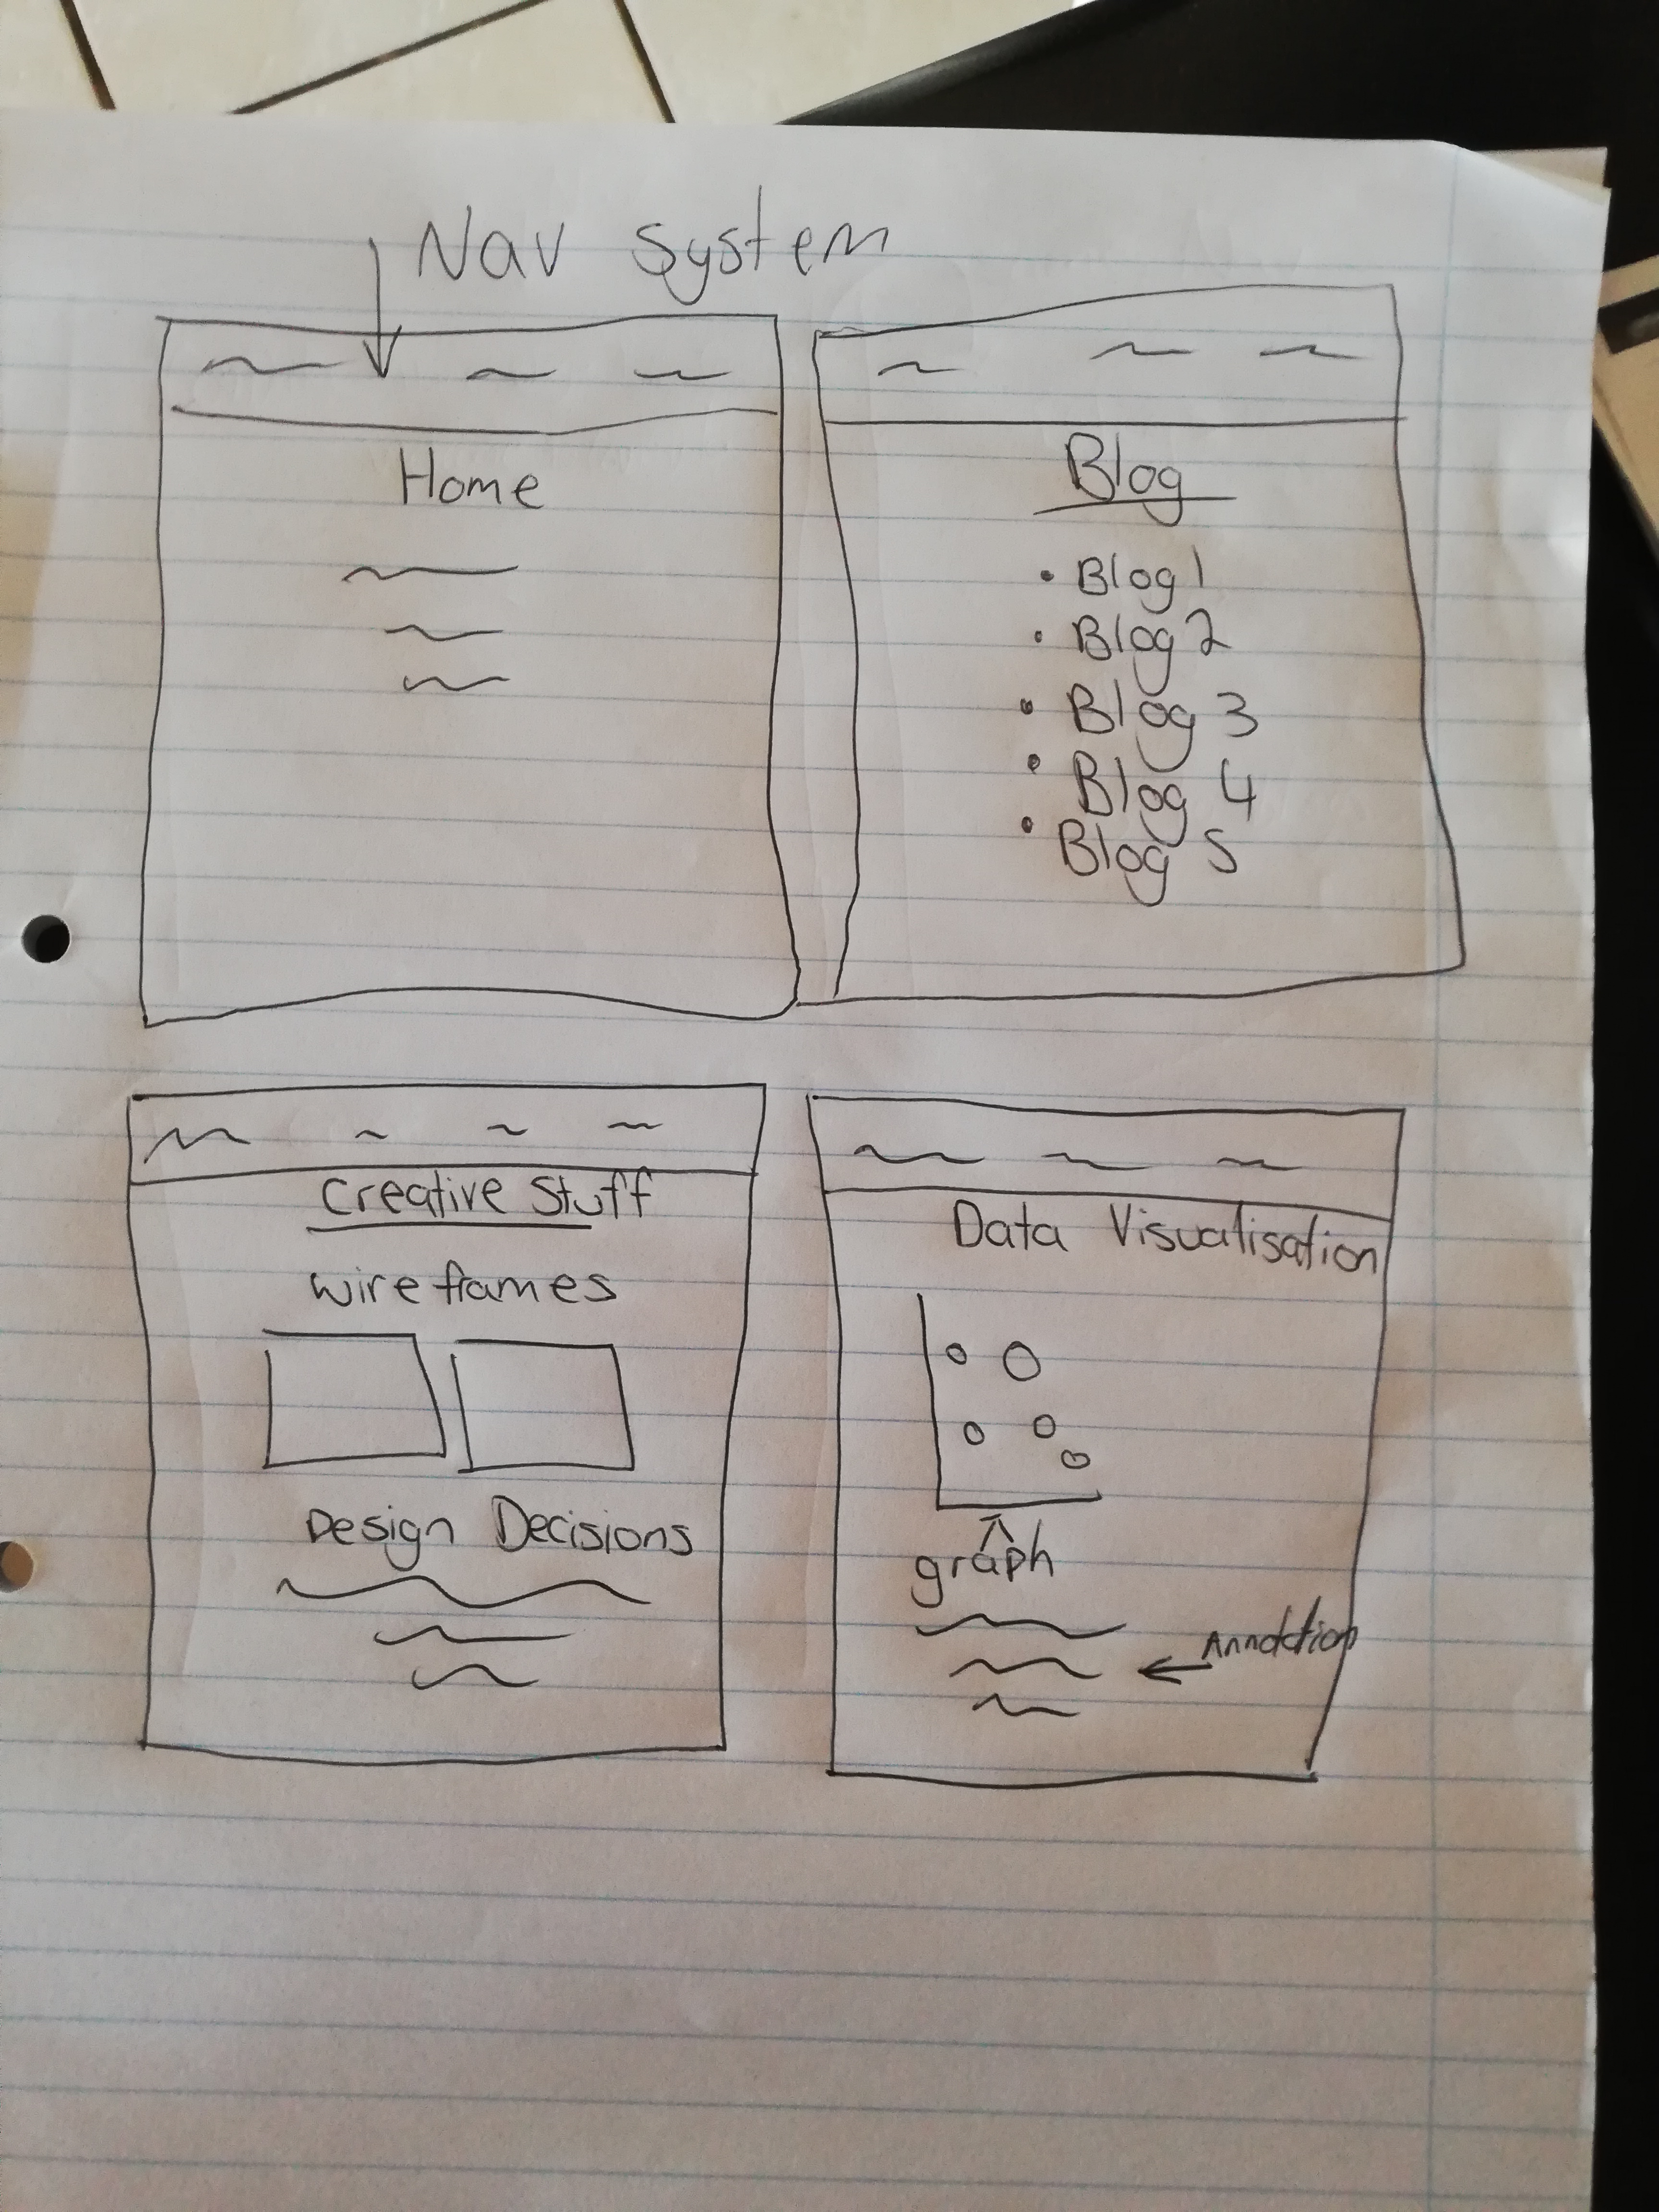 Nav system
Home
Blog
• Blog 1
• Blog 2
• Blog 3
• Blog 4
• Blog 5
Creative Stuff
wireframes
Design Decisions
Data Visualisation
graph
Annotation